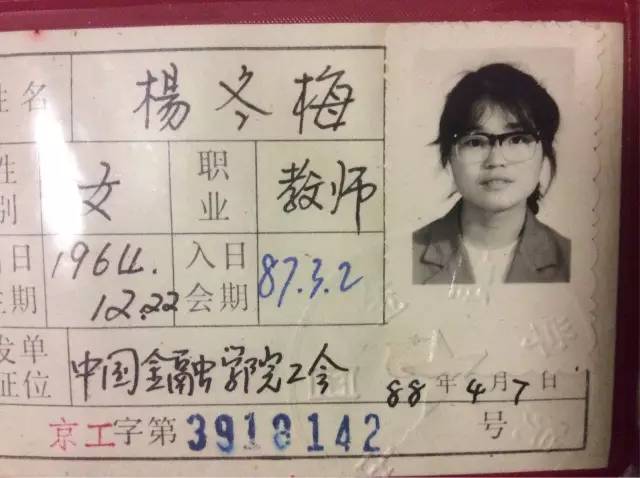 姓名 楊冬梅
性别 女 职业 教师
出日生期 1964.12.22 入日会期 87.3.2
发单证位 中国金融学院工会 88年4月7日
京工字第3918142号